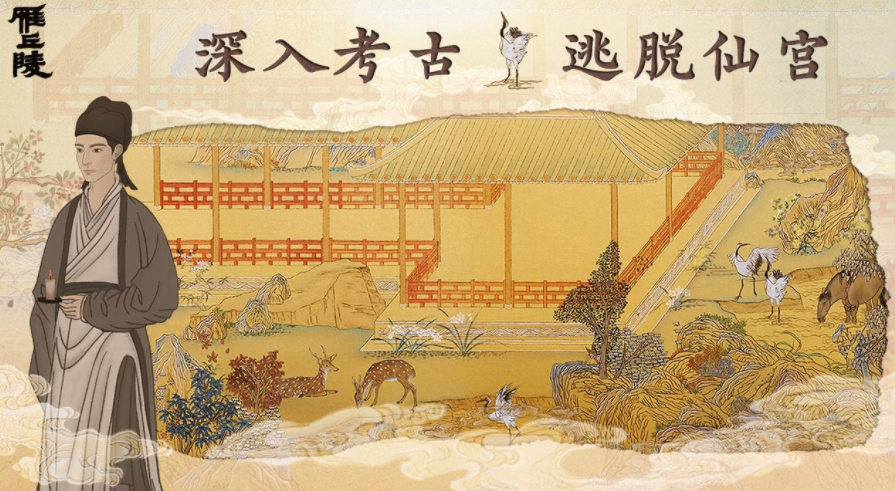 雁丘陵
深入考古 逃脱仙宫